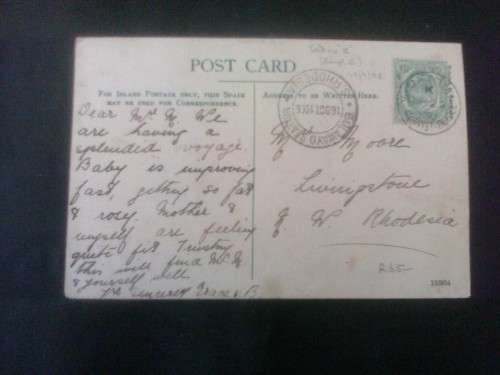 POST CARD
FOR INLAND POSTAGE ONLY, THIS SPACE
MAY BE USED FOR CORRESPONDENCE.
ADDRESS TO BE WRITTEN HERE.
Dear Mrs M. We
are having a
splendid voyage.
Baby is improving
fast, getting so fat
& rosy. Mother &
myself are feeling
quite fit. Trusting
this will find Mr M
& yourself well.
Yrs sincerely
Mrs Moore
Livingstone
N. W. Rhodesia
R35-